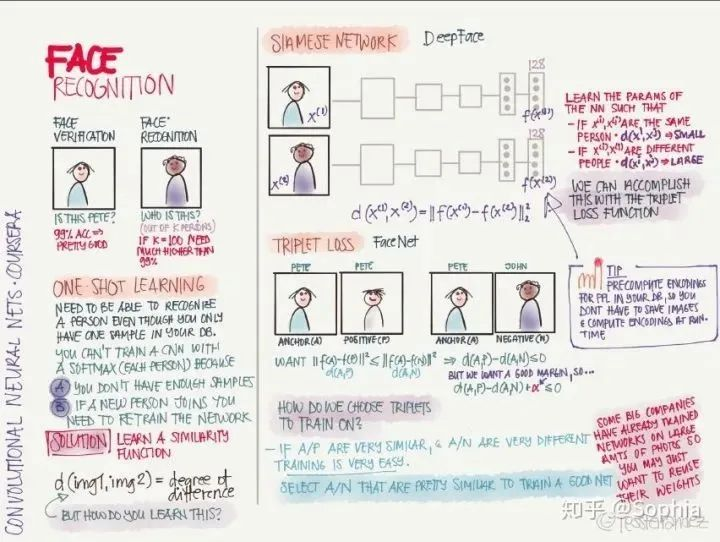 CONVOLUTIONAL NEURAL NETS · COURSERA
FACE
RECOGNITION
FACE
VERIFICATION
IS THIS PETE?
99% ACC ⇒
PRETTY GOOD
FACE
WHO IS THIS?
(OUT OF K PERSONS)
IF K=100 NEED
MUCH HIGHER THAN
99%
ONE SHOT LEARNING
NEED TO BE ABLE TO RECOGNIZE
A PERSON EVEN THOUGH YOU ONLY
HAVE ONE SAMPLE IN YOUR DB.
YOU CAN'T TRAIN A CNN WITH
A SOFTMAX (EACH PERSON) BECAUSE
A YOU DON'T HAVE ENOUGH SAMPLES
B IF A NEW PERSON JOINS YOU
NEED TO RETRAIN THE NETWORK
SOLUTION LEARN A SIMILARITY
FUNCTION
d(img1, img2) = degree of
difference
BUT HOW DO YOU LEARN THIS?
SIAMESE NETWORK DeepFace
x⁽¹⁾
128
f(x⁽¹⁾)
x⁽²⁾
128
f(x⁽²⁾)
d(x⁽¹⁾, x⁽²⁾) = ‖f(x⁽¹⁾) - f(x⁽²⁾)‖₂²
LEARN THE PARAMS OF
THE NN SUCH THAT
- IF x⁽ⁱ⁾, x⁽ʲ⁾ ARE THE SAME
PERSON · d(xⁱ, xʲ) ⇒ SMALL
- IF x⁽ⁱ⁾, x⁽ʲ⁾ ARE DIFFERENT
PEOPLE · d(xⁱ, xʲ) ⇒ LARGE
WE CAN ACCOMPLISH
THIS WITH THE TRIPLET
LOSS FUNCTION
TIP
PRECOMPUTE ENCODINGS
FOR PPL IN YOUR DB, SO YOU
DONT HAVE TO SAVE IMAGES
& COMPUTE ENCODINGS AT RUN-
TIME
TRIPLET LOSS FaceNet
PETE PETE PETE JOHN
ANCHOR(A) POSITIVE(P) ANCHOR(A) NEGATIVE(N)
WANT ‖f(A)-f(P)‖² ≤ ‖f(A)-f(N)‖² ⇒ d(A,P)-d(A,N)≤0
d(A,P) d(A,N)
BUT WE WANT A GOOD MARGIN, SO...
d(A,P)-d(A,N)+α ≤ 0
HOW DO WE CHOOSE TRIPLETS
TO TRAIN ON?
- IF A/P ARE VERY SIMILAR, & A/N ARE VERY DIFFERENT
TRAINING IS VERY EASY.
SELECT A/N THAT ARE PRETTY SIMILAR TO TRAIN A GOOD NET
SOME BIG COMPANIES
HAVE ALREADY TRAINED
NETWORKS ON LARGE
AMTS OF PHOTOS SO
YOU MAY JUST
WANT TO REUSE
THEIR WEIGHTS
知乎 @Sophia